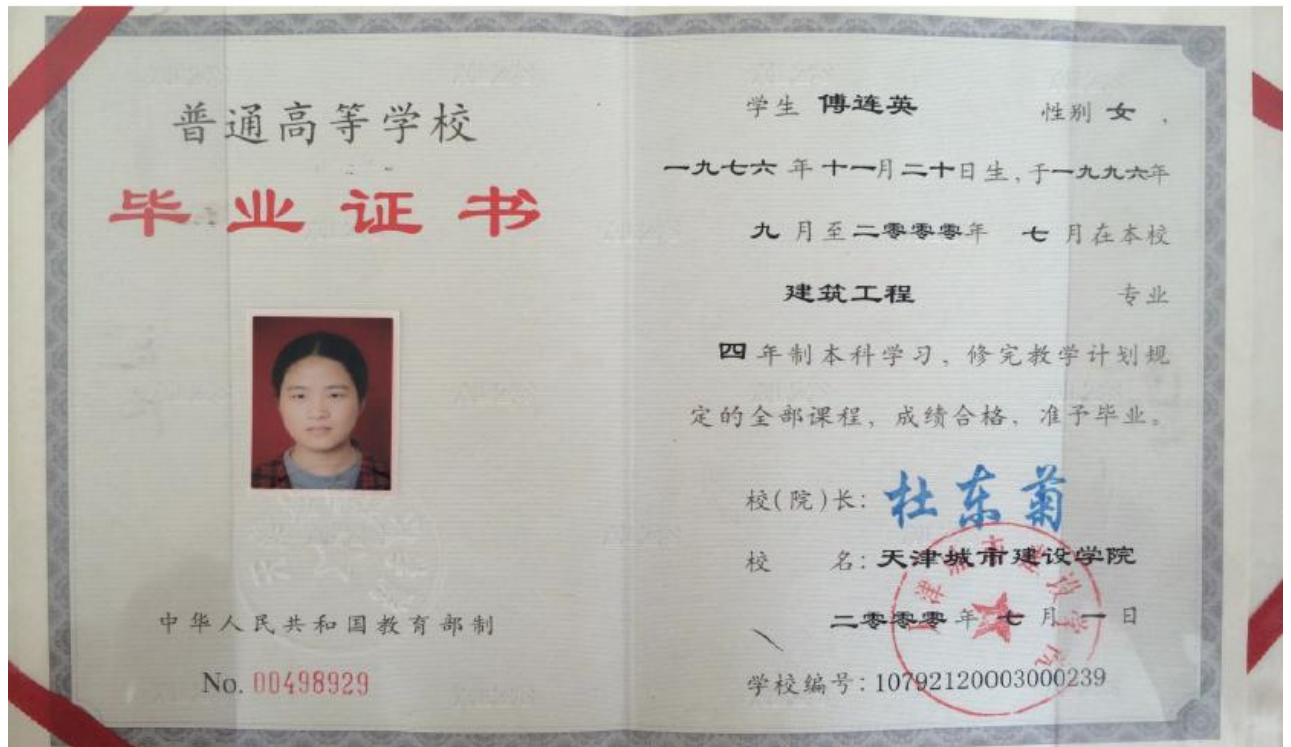 普通高等学校
毕业证书
中华人民共和国教育部制
No. 00498929
学生 傅连英 性别 女 ,
一九七六 年 十一月 二十日生, 于一九九六年
九 月至二零零零年 七 月在本校
建筑工程 专业
四 年制本科学习, 修完教学计划规
定的全部课程, 成绩合格, 准予毕业。
校(院)长: 杜东菊
校 名: 天津城市建设学院
二零零零 年 七 月 一 日
天津城市建设学院
学校编号: 10792120003000239